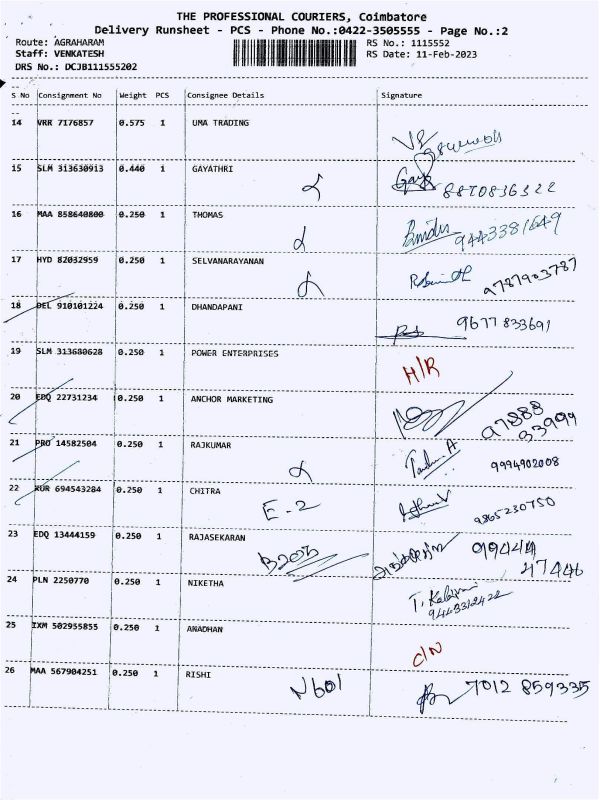 THE PROFESSIONAL COURIERS, Coimbatore
Delivery Runsheet - PCS - Phone No.:0422-3505555 - Page No.:2
Route: AGRAHARAM RS No.: 1115552
Staff: VENKATESH RS Date: 11-Feb-2023
DRS No.: DCJB111555202
S No Consignment No Weight PCS Consignee Details Signature
14 VRR 7176857 0.575 1 UMA TRADING
15 SLM 313630913 0.440 1 GAYATHRI 8870836322
16 MAA 858640800 0.250 1 THOMAS 9443381649
17 HYD 82032959 0.250 1 SELVANARAYANAN 9787903787
18 DEL 910101224 0.250 1 DHANDAPANI 9677833691
19 SLM 313680628 0.250 1 POWER ENTERPRISES H/R
20 EDQ 22731234 0.250 1 ANCHOR MARKETING 97888
33999
21 PRO 14582504 0.250 1 RAJKUMAR 9994902008
22 KUR 694543284 0.250 1 CHITRA E-2 9865230750
23 EDQ 13444159 0.250 1 RAJASEKARAN B203 99444
47446
24 PLN 2250770 0.250 1 NIKETHA
9443312422
25 IXM 502955855 0.250 1 ANADHAN C/N
26 MAA 567904251 0.250 1 RISHI N601 7012 859335